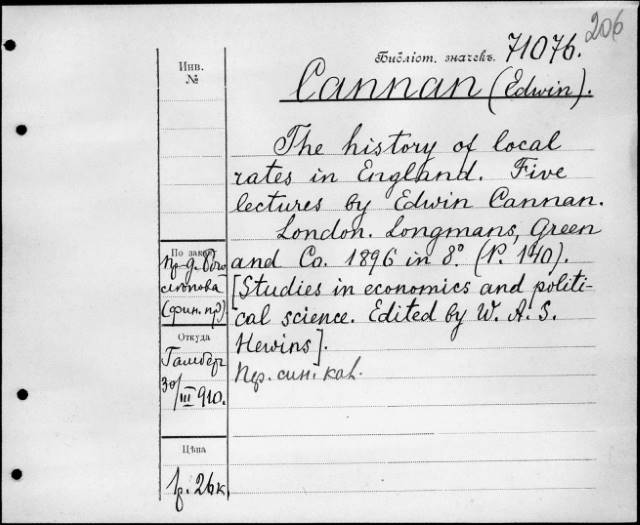 206
Библіот. значекъ. 71076.
Инв.
№
Cannan (Edwin).
The history of local
rates in England. Five
lectures by Edwin Cannan.
London. Longmans, Green
and Co. 1896 in 8°. (P. 140).
[Studies in economics and politi-
cal science. Edited by W. A. S.
Hewins].
По заказу
(фин. пр.)
Откуда
30/III 910.
Цѣна
26 к.